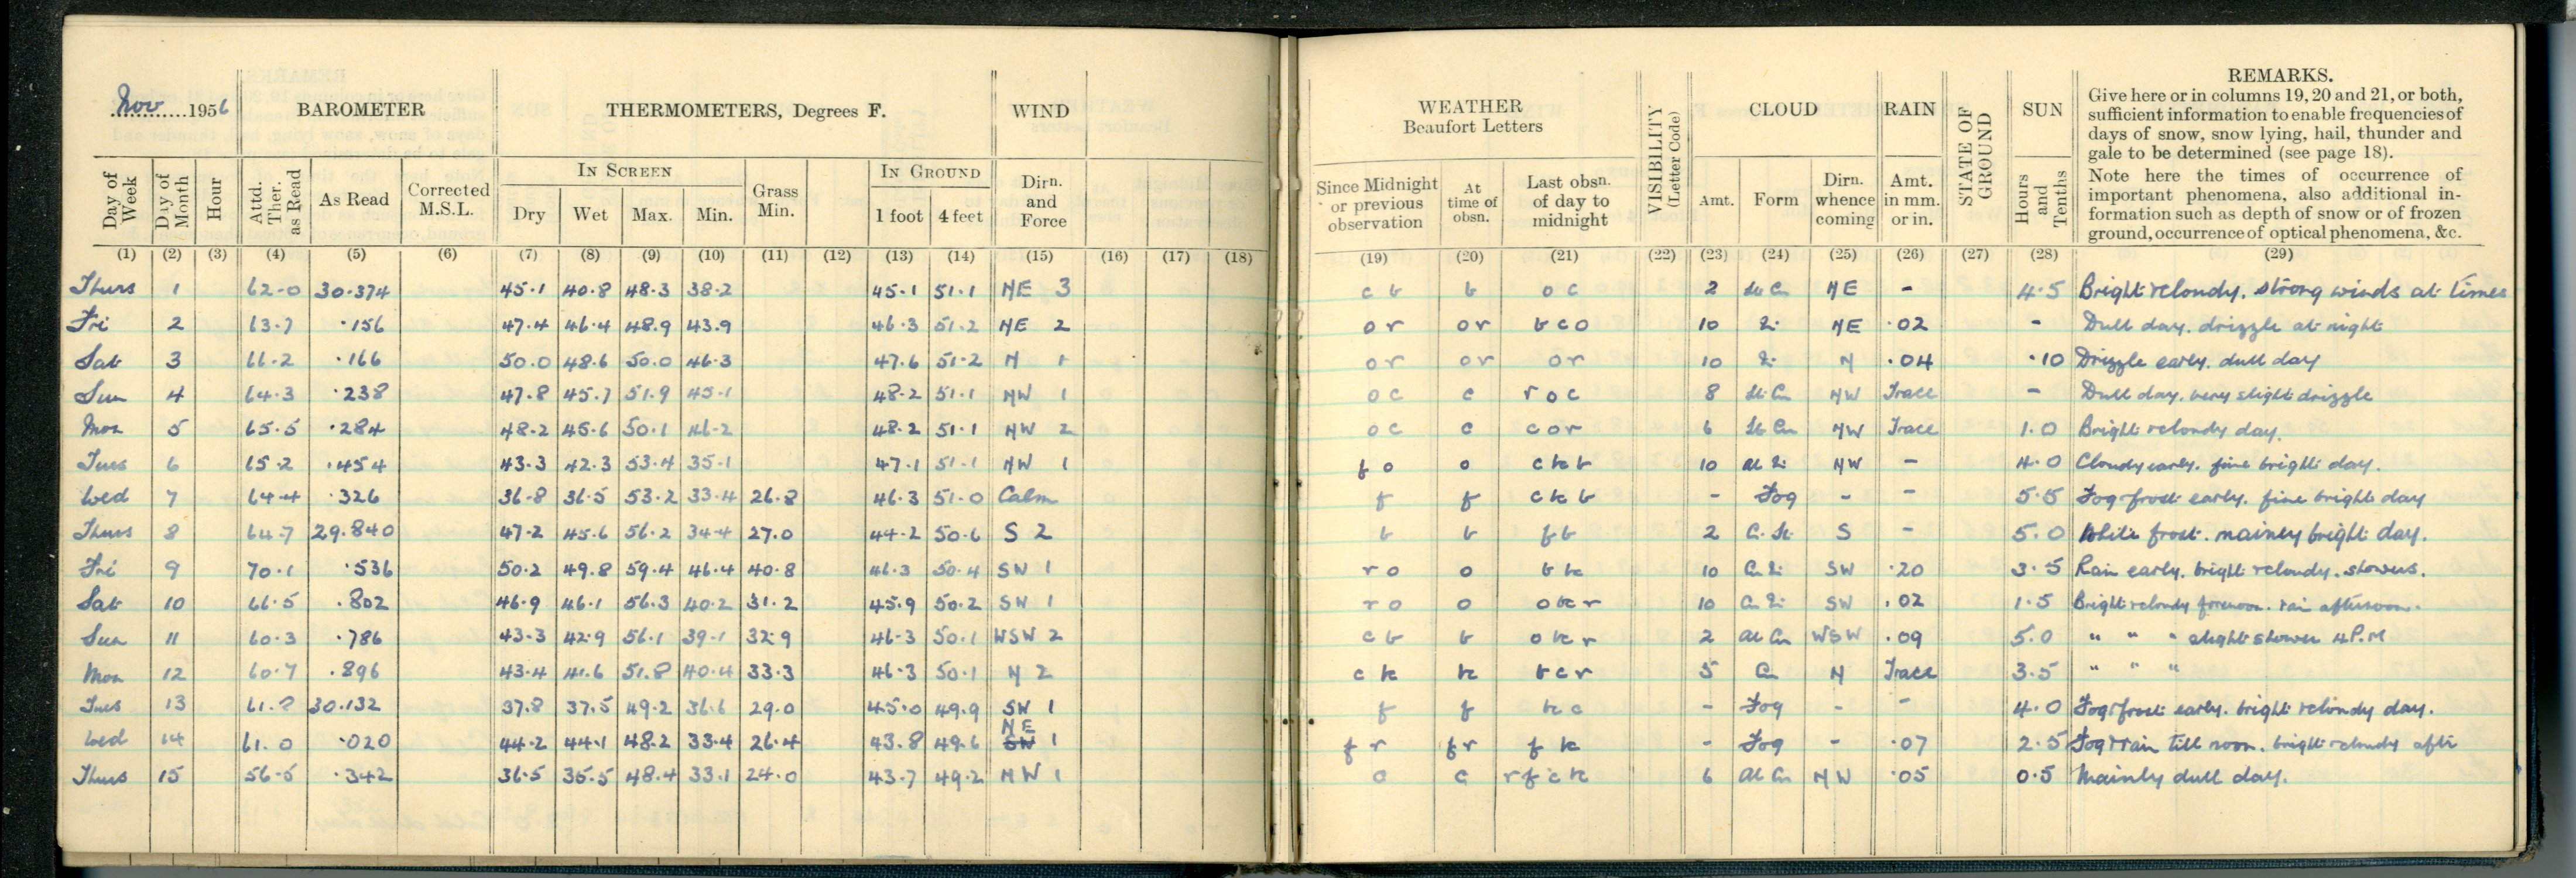 Nov 1956
BAROMETER
THERMOMETERS, Degrees F.
WIND
Day of Week
Day of Month
Hour
Attd. Ther. as Read
As Read
Corrected M.S.L.
IN SCREEN
Dry Wet Max. Min.
Grass Min.
IN GROUND
1 foot 4 feet
Dirn. and Force
(1) (2) (3) (4) (5) (6) (7) (8) (9) (10) (11) (12) (13) (14) (15) (16) (17) (18)
Thurs 1 62.0 30.374 45.1 40.8 48.3 38.2 45.1 51.1 NE 3
Fri 2 63.7 .156 47.4 46.4 48.9 43.9 46.3 51.2 NE 2
Sat 3 66.2 .166 50.0 48.6 50.0 46.3 47.6 51.2 N 1
Sun 4 64.3 .238 47.8 45.7 51.9 45.1 48.2 51.1 NW 1
Mon 5 65.5 .284 48.2 45.6 50.1 46.2 48.2 51.1 NW 2
Tues 6 65.2 .454 43.3 42.3 53.4 35.1 47.1 51.1 NW 1
Wed 7 64.4 .326 36.8 36.5 53.2 33.4 26.8 46.3 51.0 Calm
Thurs 8 64.7 29.840 47.2 45.6 56.2 34.4 27.0 44.2 50.6 S 2
Fri 9 70.1 .536 50.2 49.8 59.4 46.4 40.8 46.3 50.4 SW 1
Sat 10 66.5 .802 46.9 46.1 56.3 40.2 31.2 45.9 50.2 SW 1
Sun 11 60.3 .786 43.3 42.9 56.1 39.1 32.9 46.3 50.1 WSW 2
Mon 12 60.7 .896 43.4 41.6 51.8 40.4 33.3 46.3 50.1 N 2
Tues 13 61.8 30.132 37.8 37.5 49.2 36.6 29.0 45.0 49.9 SW 1
Wed 14 61.0 .020 44.2 44.1 48.2 33.4 26.4 43.8 49.6 NE SW 1
Thurs 15 56.5 .342 36.5 35.5 48.4 33.1 24.0 43.7 49.2 NW 1
WEATHER
Beaufort Letters
Since Midnight or previous observation
At time of obsn.
Last obsn. of day to midnight
VISIBILITY (Letter Code)
CLOUD
Amt. Form
Dirn. whence coming
RAIN
Amt. in mm. or in.
STATE OF GROUND
SUN
Hours and Tenths
REMARKS.
Give here or in columns 19, 20 and 21, or both,
sufficient information to enable frequencies of
days of snow, snow lying, hail, thunder and
gale to be determined (see page 18).
Note here the times of occurrence of
important phenomena, also additional in-
formation such as depth of snow or of frozen
ground, occurrence of optical phenomena, &c.
(19) (20) (21) (22) (23) (24) (25) (26) (27) (28) (29)
c b b o c 2 St Cu NE - 4.5 Bright & cloudy. strong winds at times
o r o r b c o 10 NE .02 - Dull day. drizzle at night
o r o r o r 10 N .04 .10 Drizzle early. dull day
o c c r o c 8 St Cu NW Trace - Dull day. very slight drizzle
o c c c o r 6 St Cu NW Trace 1.0 Bright & cloudy day.
f o o 10 NW - 4.0 Cloudy early. fine bright day.
f f - Fog - - 5.5 Fog & frost early. fine bright day
b b f b 2 S - 5.0 White frost. mainly bright day.
r o o 10 SW .20 3.5 Rain early. bright & cloudy. showers.
r o o 10 SW .02 1.5 Bright & cloudy forenoon. rain afternoon.
c b b 2 WSW .09 5.0 " " " slight shower 4 P.M
5 Cu N Trace 3.5 " " "
f f - Fog - - 4.0 Fog & frost early. bright & cloudy day.
f r f r - Fog - .07 2.5 Fog & rain till noon. bright & cloudy after
c 6 NW .05 0.5 Mainly dull day.